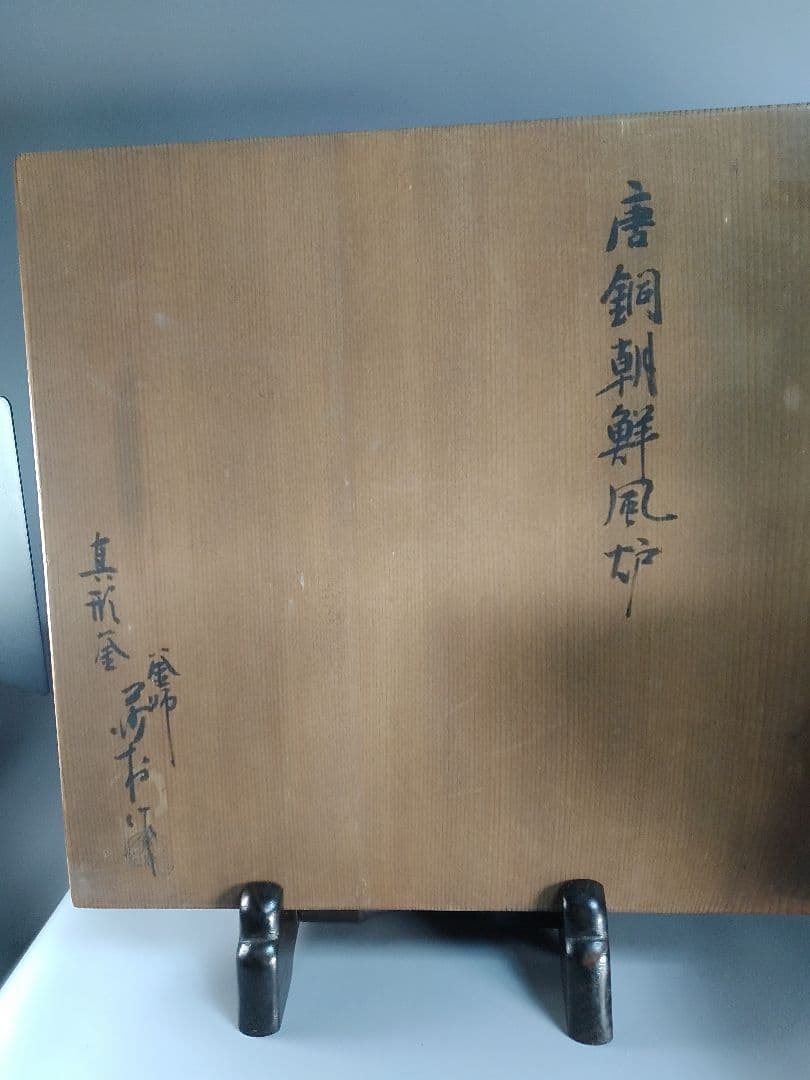 唐銅朝鮮風炉
真形釜
釜師
作